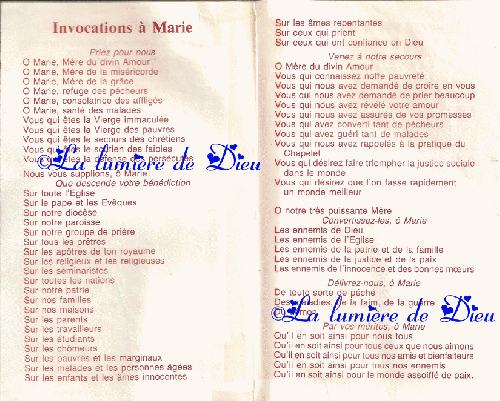 Invocations à Marie
Priez pour nous
O Marie, Mère du divin Amour
O Marie, Mère de la miséricorde
O Marie, Mère de la grâce
O Marie, refuge des pécheurs
O Marie, consolatrice des affligés
O Marie, santé des malades
Vous qui êtes la Vierge immaculée
Vous qui êtes la Vierge des pauvres
Vous qui êtes le secours des chrétiens
Vous qui êtes le soutien des faibles
Vous qui êtes la défense des persécutés
©La lumière de Dieu
Nous vous supplions, ô Marie
Que descende votre bénédiction
Sur toute l'Eglise
Sur le pape et les Evêques
Sur notre diocèse
Sur notre paroisse
Sur notre groupe de prière
Sur tous les prêtres
Sur les apôtres de ton royaume
Sur les religieux et les religieuses
Sur les séminaristes
Sur toutes les nations
Sur notre patrie
Sur nos familles
Sur nos maisons
Sur les parents
Sur les travailleurs
Sur les étudiants
Sur les chômeurs
Sur les pauvres et les marginaux
Sur les malades et les personnes âgées
Sur les enfants et les âmes innocentes
Sur les âmes repentantes
Sur ceux qui prient
Sur ceux qui ont confiance en Dieu
Venez à notre secours
O Mère du divin Amour
Vous qui connaissez notre pauvreté
Vous qui nous avez demandé de croire en vous
Vous qui nous avez demandé de prier beaucoup
Vous qui nous avez révélé votre amour
Vous qui nous avez assurés de vos promesses
Vous qui avez converti tant de pécheurs
Vous qui avez guéri tant de malades
Vous qui nous avez rappelés à la pratique du
Chapelet
Vous qui désirez faire triompher la justice sociale
dans le monde
Vous qui désirez que l'on fasse rapidement
un monde meilleur
O notre très puissante Mère
Convertissez-les, ô Marie
Les ennemis de Dieu
Les ennemis de l'Eglise
Les ennemis de la patrie et de la famille
Les ennemis de la justice et de la paix
Les ennemis de l'innocence et des bonnes mœurs
Délivrez-nous, ô Marie
De toute sorte de péché
Des maladies, de la faim, de la guerre
©La lumière de Dieu
Par vos mérites, ô Marie
Qu'il en soit ainsi pour nous tous
Qu'il en soit ainsi pour tous ceux que nous aimons
Qu'il en soit ainsi pour tous nos amis et bienfaiteurs
Qu'il en soit ainsi pour tous nos ennemis
Qu'il en soit ainsi pour le monde assoiffé de paix.